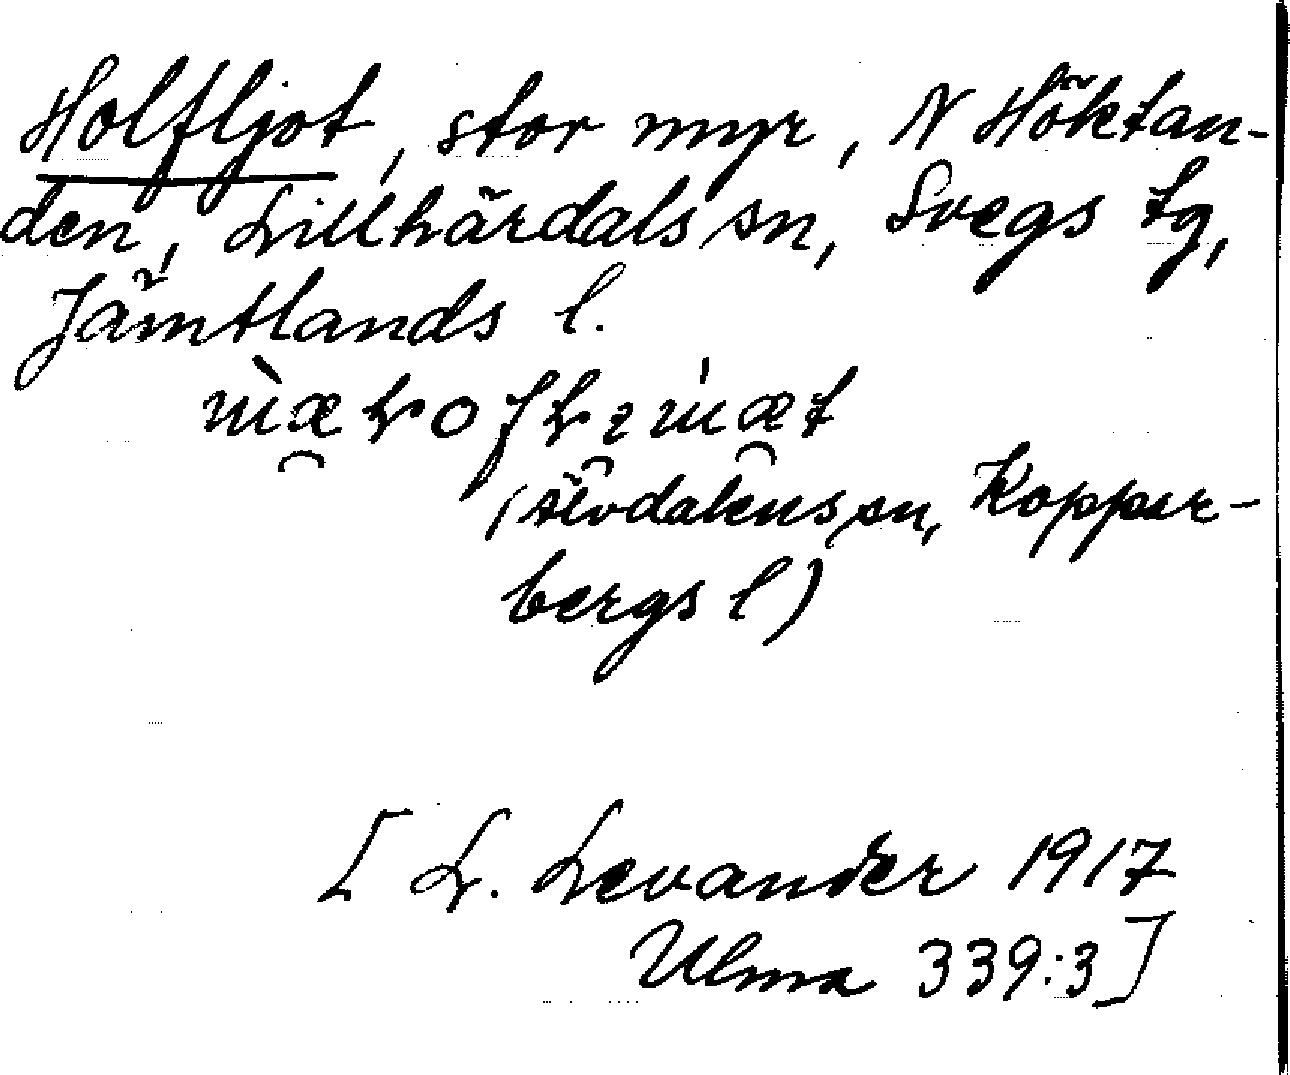 Holfljot, stor myr, N Höktan-
den, Lillhärdals sn, Svegs tg,
Jämtlands l.
(Älvdalens sn, Koppar-
bergs l)
[L. Levander 1917
Ulma 339:3]